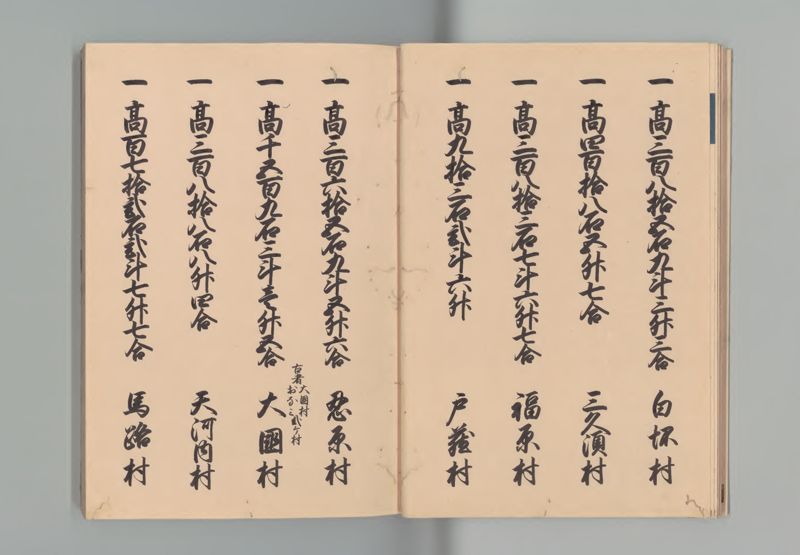 一 高三百八拾五石九斗三升二合 白坏村
一 高四百拾八石五升七合 三久須村
一 高三百八拾三石七斗六升七合 福原村
一 高九拾三石弐斗六升 戸蔵村
一 高三百六拾五石九斗五升六合 忍原村
古者大國村
おなみ弐ケ村
一 高千五百九石三斗壱升五合 大國村
一 高三百八拾八石八升四合 天河内村
一 高百七拾弐石弐斗七升七合 馬路村